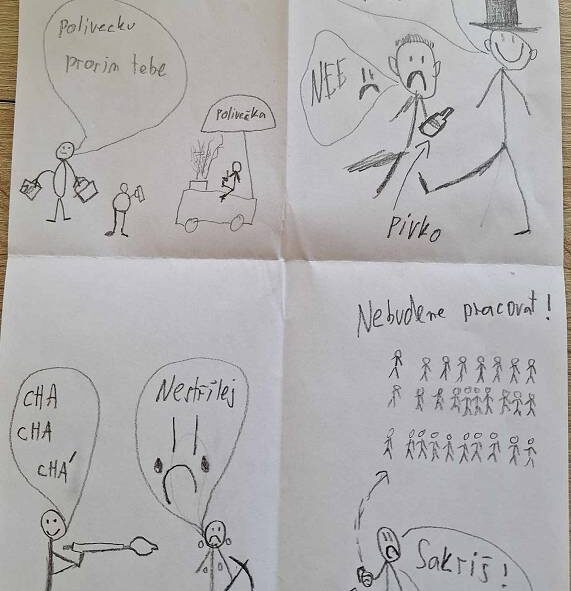 Polivecku
prorim tebe
Polivečka
NEE
Pivko
CHA
CHA
CHÁ
Nestřílej
Nebudeme pracovat!
Sakriš!